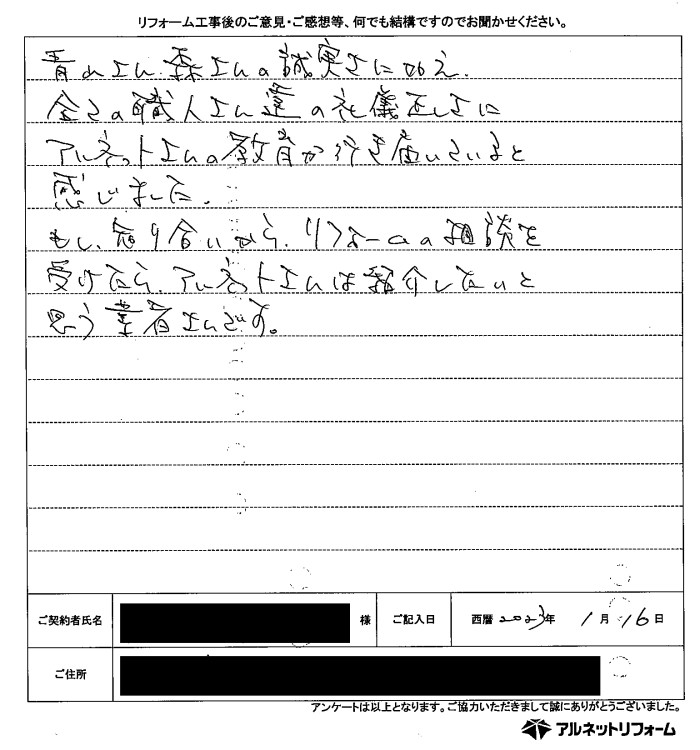 リフォーム工事後のご意見・ご感想等、何でも結構ですのでお聞かせください。
青山さん、森さんの誠実さに加え、
全ての職人さん達の礼儀正しさに
アルネットさんの教育が行き届いていると
感じました。
もし、知り合いから、リフォームの相談を
受けたら、アルネットさんは紹介したいと
思う業者さんです。
ご契約者氏名 様 ご記入日 西暦 2023年 1月 16日
ご住所
アンケートは以上となります。ご協力いただきまして誠にありがとうございました。
アルネットリフォーム